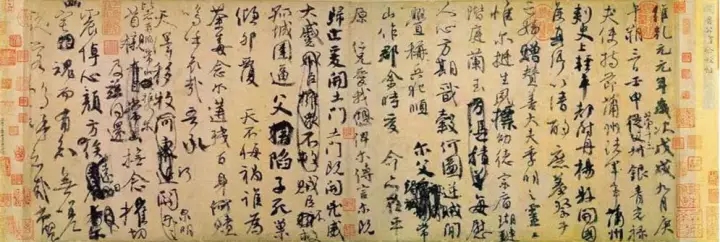 維乾元元年歲次戊戌九月庚
午朔三日壬申第十三叔銀青光祿
夫使持節蒲州諸軍事蒲州
刺史上輕車都尉丹楊縣開國
侯真卿以清酌庶羞祭于
亡姪贈贊善大夫季明之靈曰
惟爾挺生夙標幼德宗廟瑚璉
階庭蘭玉每慰
人心方期戩穀何圖逆賊間
釁稱兵犯順爾父竭誠常
山作郡余時受命亦在平
原仁兄愛我俾爾傳言爾既
歸止爰開土門土門既開凶威
大蹙賊臣不救
孤城圍逼父陷子死巢
傾卵覆天不悔禍誰為
荼毒念爾遘殘百身何贖
嗚呼哀哉吾承
天澤移牧河關泉明
比者再陷常山攜爾
首櫬及茲同還撫念摧切
震悼心顏方俟
幽宅魂而有知無嗟
久客嗚呼哀哉尚饗